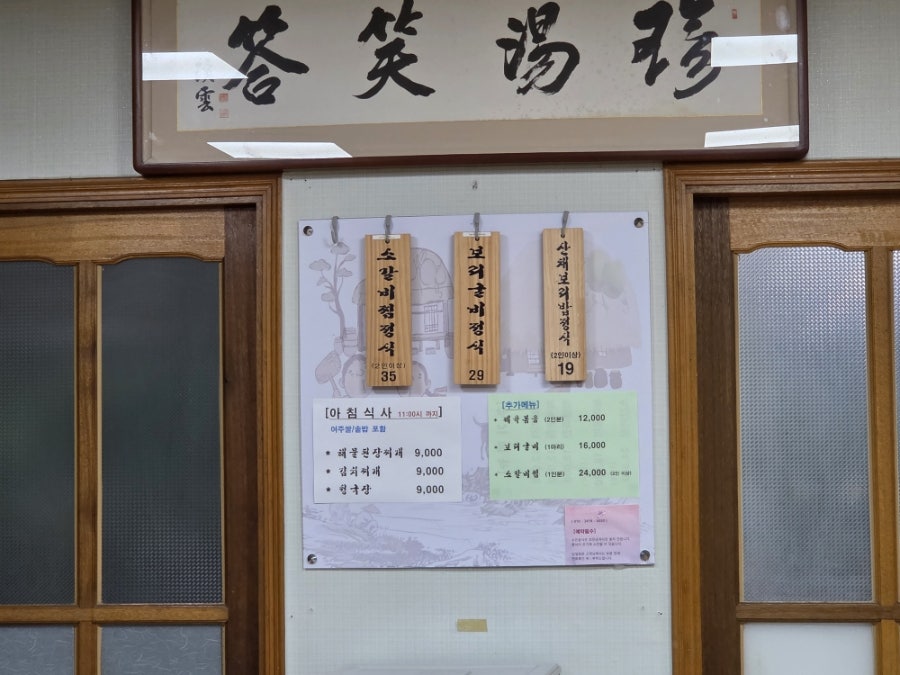 珍湯笑答
소갈비찜정식
(2인이상)
35
보리굴비정식
29
산채보리밥정식
(2인이상)
19
[아 침 식 사 11:00시 까지]
여주쌀/솥밥 포함
* 해물된장찌개 9,000
* 김치찌개 9,000
* 청국장 9,000
[추가메뉴]
* 제육볶음 (2인분) 12,000
* 보리굴비 (1마리) 16,000
* 소갈비찜 (1인분) 24,000 (2인 이상)
[예약필수]